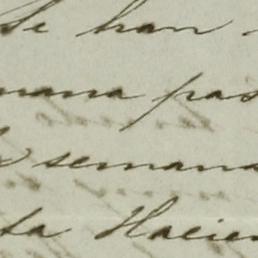 Se han
mana pas
semana
ta Hacien